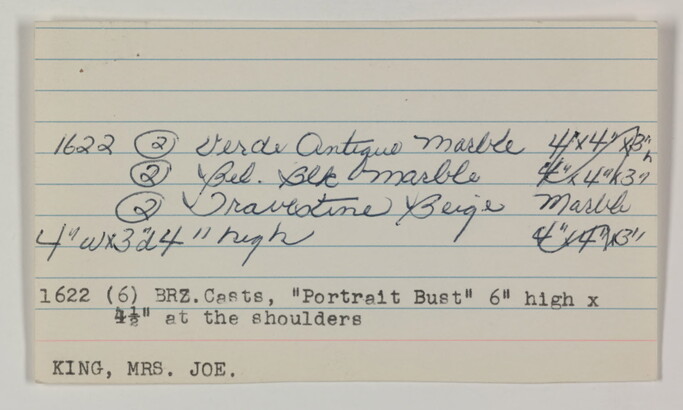 1622 ② Verde Antique Marble 4"x4"x3"h
② Bel. Blk Marble 4"x4"x3"
② Travestine Beige Marble
4"wx3"d4" high 4"x4"x3"
1622 (6) BRZ.Casts, "Portrait Bust" 6" high x
4½" at the shoulders
KING, MRS. JOE.